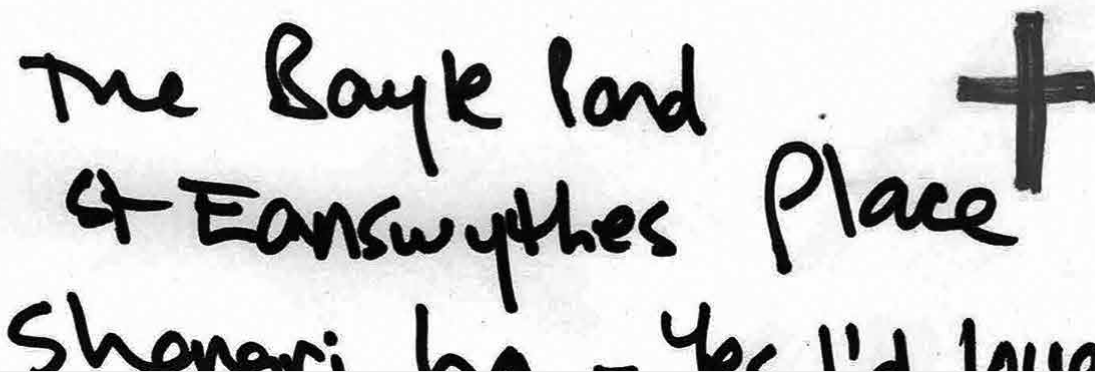 The Bayle Pond
St Eanswythes Place
Shangri la - Yes I'd love